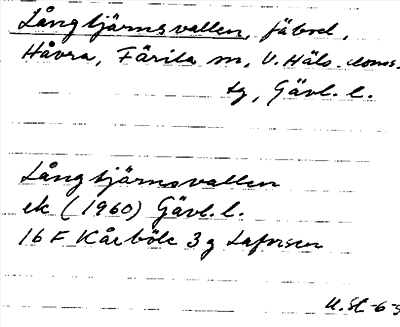 Långtjärnsvallen, fäbod,
Håvra, Färila sn, V. Häls. doms.
tg, Gävl. l.
Långtjärnsvallen
ek (1960) Gävl. l.
16 F Kårböle 3 g Laforsen